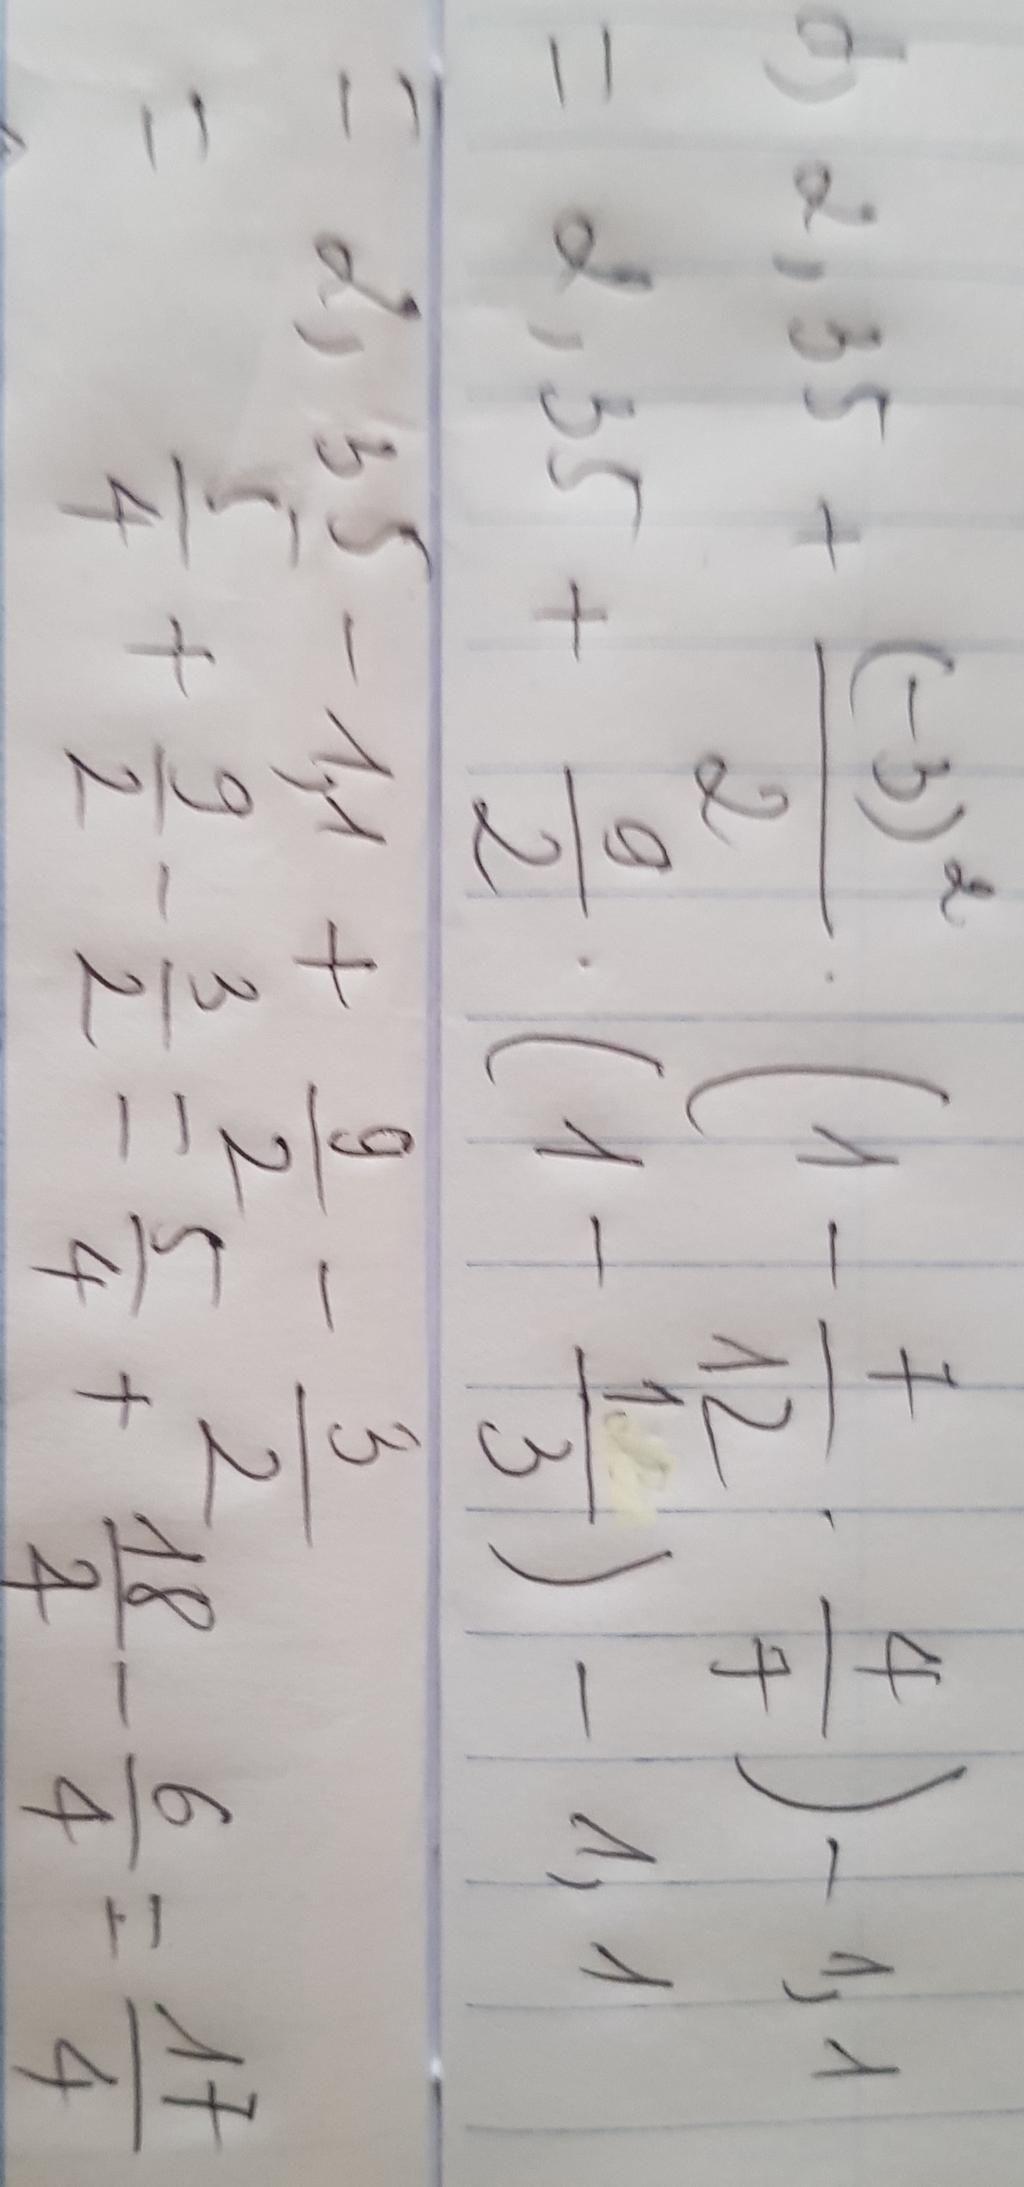 d) 2,35 + (-3)²/2 . (1 - 7/12 . 4/7) - 1,1
= 2,35 + 9/2 . (1 - 1/3) - 1,1
= 2,35 - 1,1 + 9/2 - 3/2
= 5/4 + 9/2 - 3/2 = 5/4 + 18/4 - 6/4 = 17/4